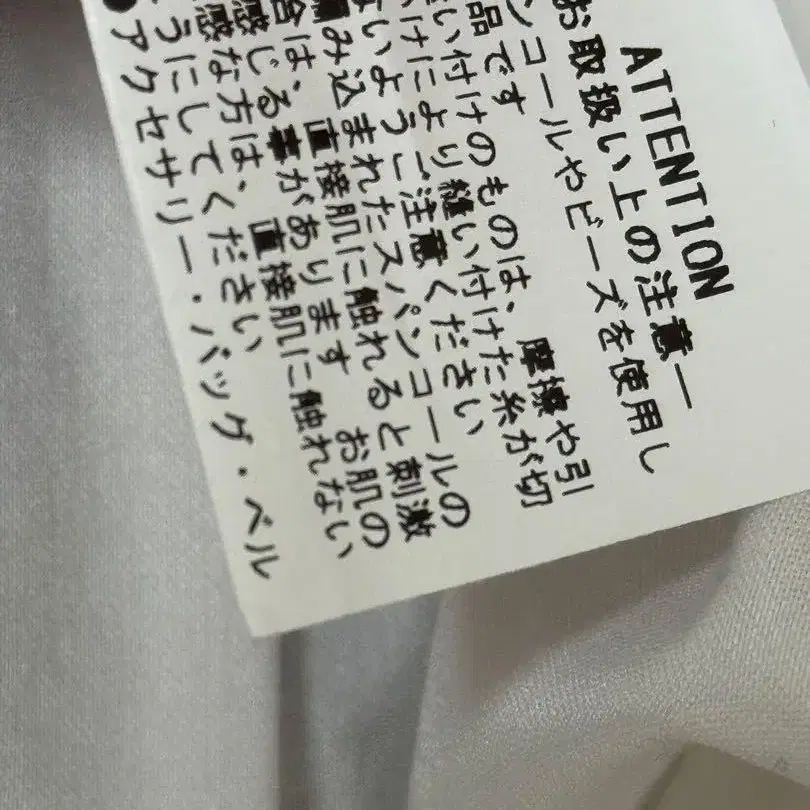 ATTENTION
お取扱い上の注意ー
ンコールやビーズを使用し
品です
い付けのものは、摩擦や引
けにより縫い付けた糸が切
ないようご注意ください
編み込まれたスパンコールの
は、直接肌に触れると刺激
感じる事があります お肌の
感な方は、直接肌に触れない
うにしてください
●アクセサリー・バッグ・ベル